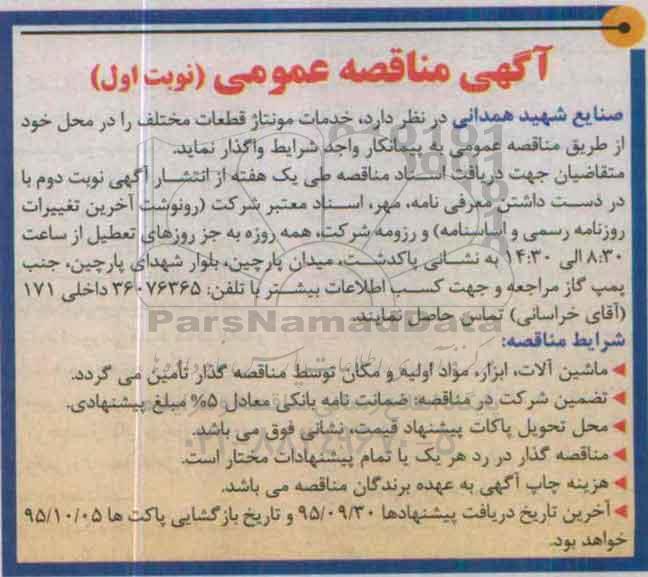 آگهی مناقصه عمومی (نوبت اول)
صنایع شهید همدانی در نظر دارد، خدمات مونتاژ قطعات مختلف را در محل خود
از طریق مناقصه عمومی به پیمانکار واجد شرایط واگذار نماید.
متقاضیان جهت دریافت اسناد مناقصه طی یک هفته از انتشار آگهی نوبت دوم با
در دست داشتن معرفی نامه، مهر، اسناد معتبر شرکت (رونوشت آخرین تغییرات
روزنامه رسمی و اساسنامه) و رزومه شرکت، همه روزه به جز روزهای تعطیل از ساعت
۸:۳۰ الی ۱۴:۳۰ به نشانی پاکدشت، میدان پارچین، بلوار شهدای پارچین، جنب
پمپ گاز مراجعه و جهت کسب اطلاعات بیشتر با تلفن: ۳۶۰۷۶۳۶۵ داخلی ۱۷۱
(آقای خراسانی) تماس حاصل نمایند.
ParsNamadData
شرایط مناقصه:
◄ماشین آلات، ابزار، مواد اولیه و مکان توسط مناقصه گذار تأمین می گردد.
◄تضمین شرکت در مناقصه: ضمانت نامه بانکی معادل ۵% مبلغ پیشنهادی.
◄محل تحویل پاکات پیشنهاد قیمت، نشانی فوق می باشد.
◄مناقصه گذار در رد هر یک یا تمام پیشنهادات مختار است.
◄هزینه چاپ آگهی به عهده برندگان مناقصه می باشد.
◄آخرین تاریخ دریافت پیشنهادها ۹۵/۰۹/۳۰ و تاریخ بازگشایی پاکت ها ۹۵/۱۰/۰۵
خواهد بود.